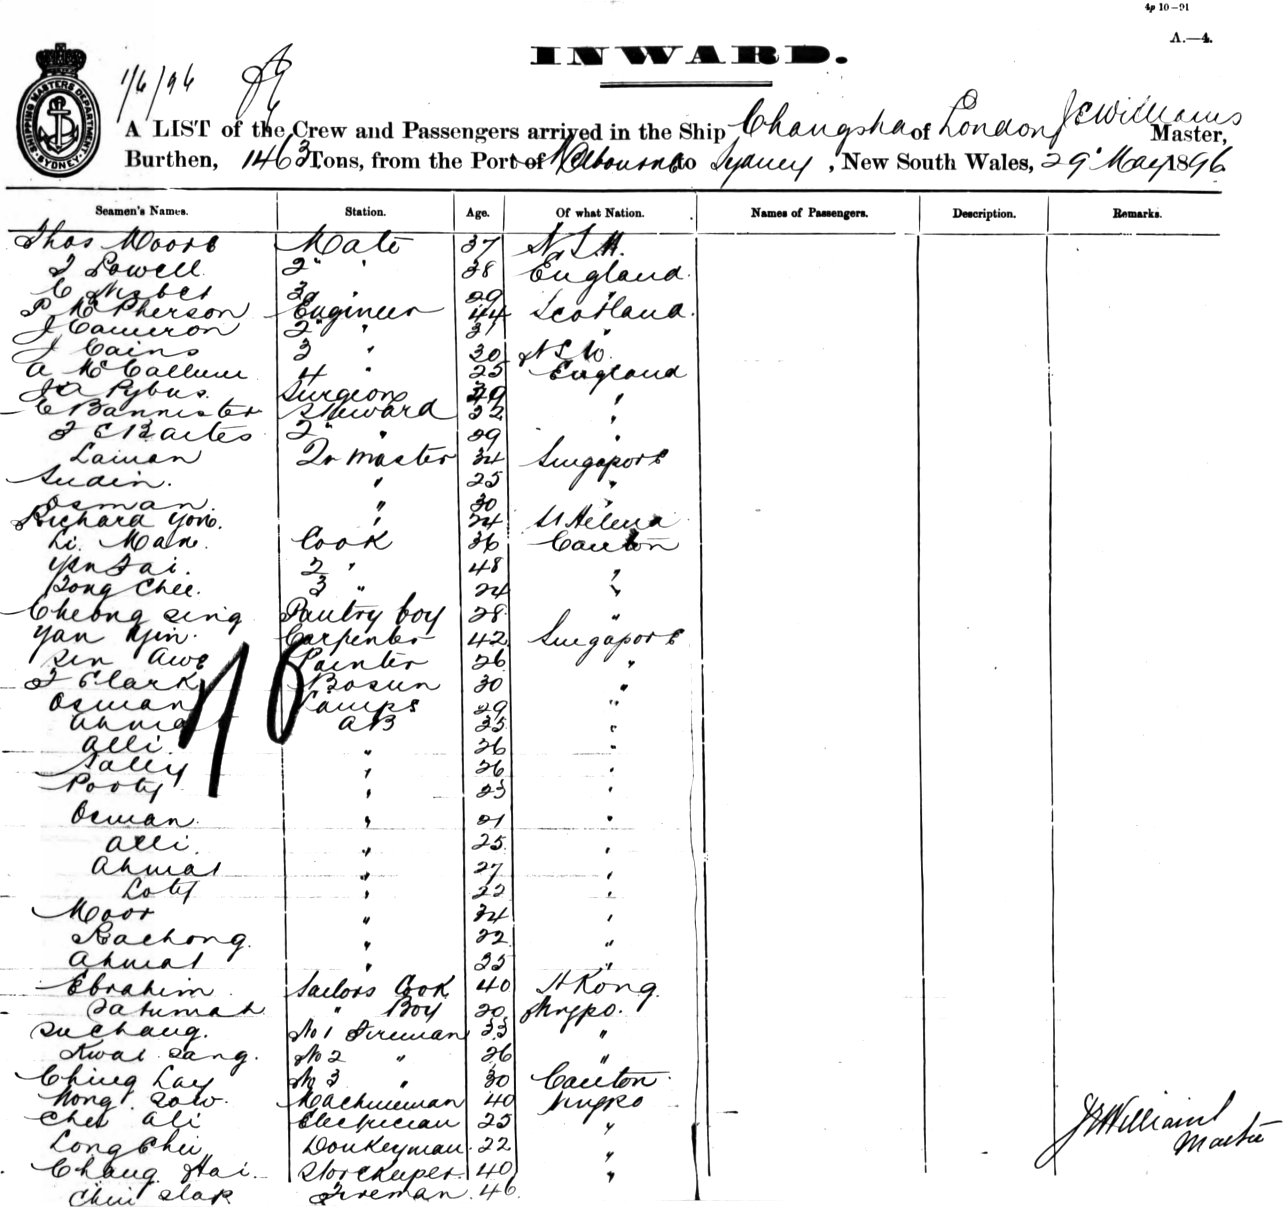 4p 10-91
A.—4.
INWARD.
SHIPPING MASTERS DEPARTMENT SYDNEY
1/6/96
A LIST of the Crew and Passengers arrived in the Ship Changsha of London J C Williams Master,
Burthen, 1463 Tons, from the Port of Melbourne to Sydney, New South Wales, 29 May 1896
Seamen's Names. Station. Age. Of what Nation. Names of Passengers. Description. Remarks.
Thos Moore Mate 37
J Lowell 2" " 28 England
C Nisbet 3d " 29 "
P McPherson Engineer 44 Scotland
J Cameron 2" " 31 "
J Cains 3 " 30 N S W.
A McCallum 4 " 25 England
J A Pybus. Surgeon 29 "
C Bannister Steward 32 "
F C Bartes 2" " 29 "
Laiman Qr Master 34 Singapore
Sudin. " 25 "
Osman. " 30 "
Richard York. " 24 St Helena
Li Man. Cook 36 Canton
Yen Fai. 2 " 48 "
Bong Chee. 3 " 24 "
Cheong Sing Pantry boy 28 "
Yan Yin. Carpenter 42 Singapore
Sin Awe Painter 26 "
F Clark Bosun 30 "
Osman Lamps 29 "
Ahmat AB 35 "
Alli. " 26 "
Salley " 26 "
Pooty " 23 "
Osman. " 21 "
Alli. " 25 "
Ahmat " 27 "
Loty " 22 "
Moor " 34 "
Kachong. " 22 "
Ahmat " 25 "
Ebrahim Sailors Cook 40 H Kong
Fatimah " Boy 20 Ningpo.
Su Chang. No 1 Fireman 33 "
Kwai Sang. No 2 " 26 "
Ching Lay No 3 " 30 Canton
Wong Sow. Machineman 40 Ningpo
Chee Ali Electrician 25 "
Long Chu Donkeyman. 22 "
Chang Hai. Storekeeper. 40 "
Fireman. 46
J C Williams
Master